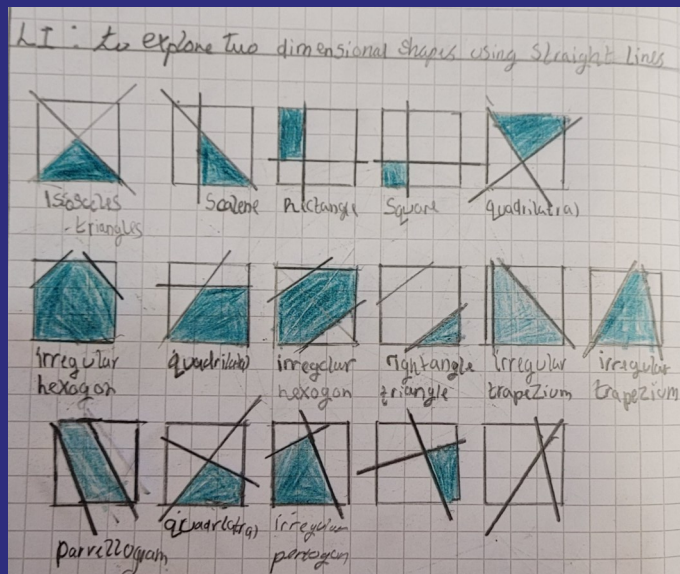 LI: to explore two dimensional shapes using straight lines
Isosceles
- triangles
Scalene
Rectangle
Square
quadrilatral
irregular
hexagon
quadrilatral
irregular
hexagon
rightangle
triangle
irregular
trapezium
irregular
trapezium
parrellogram
quadrilatral
irregular
pentagon